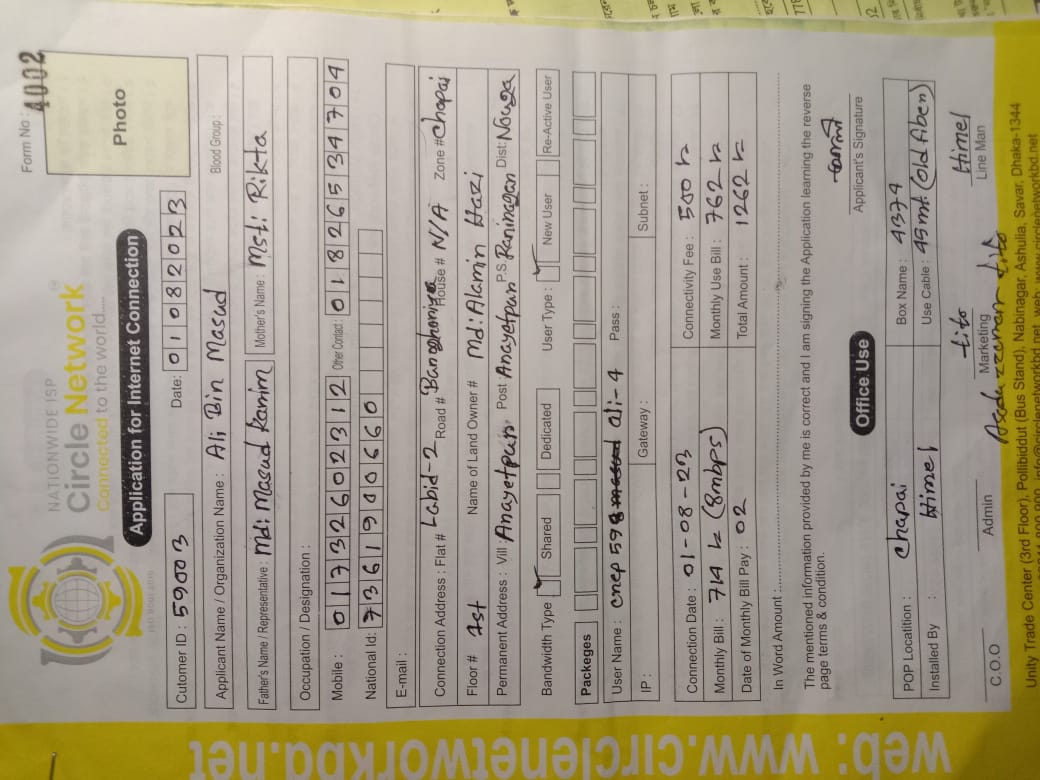 Form No : 4002
NATIONWIDE ISP
Circle Network
Connected to the world.....
Photo
Application for Internet Connection
Cutomer ID : 59003 Date: 01082023
Applicant Name / Organization Name : Ali Bin Masud Blood Group :
Father's Name / Representative : Md: Masud Karim Mother's Name : Mst: Rikta
Occupation / Designation :
Mobile : 01732602312 Other Contact : 01826534704
National Id: 7361940660
E-mail :
Connection Address : Flat # Labid-2 Road # House # N/A Zone # Chapai
Floor # 1st Name of Land Owner # Md: Alamin Hazi
Permanent Address : Vill : Anayetpur, Post : Anayetpur P.S Raninagar Dist: Nouga
Bandwidth Type Shared Dedicated User Type : New User Re-Active User
Packeges
User Name : cnep 598 ali-4 Pass :
IP : Gateway : Subnet :
Connection Date : 01-08-23 Connectivity Fee : 500
Monthly Bill : 714 (8mbps) Monthly Use Bill : 762
Date of Monthly Bill Pay : 02 Total Amount : 1262
In Word Amount :
The mentioned information provided by me is correct and I am signing the Application learning the reverse
page terms & condition.
Applicant's Signature
Office Use
POP Locatition : Chapai Box Name : 4374
Installed By : Himel Use Cable : 45mt (old fiben)
tito Himel
C.O.O Admin Marketing Line Man
Unity Trade Center (3rd Floor), Pollibiddut (Bus Stand), Nabinagar, Ashulia, Savar, Dhaka-1344
web: www.circlenetworkbd.net